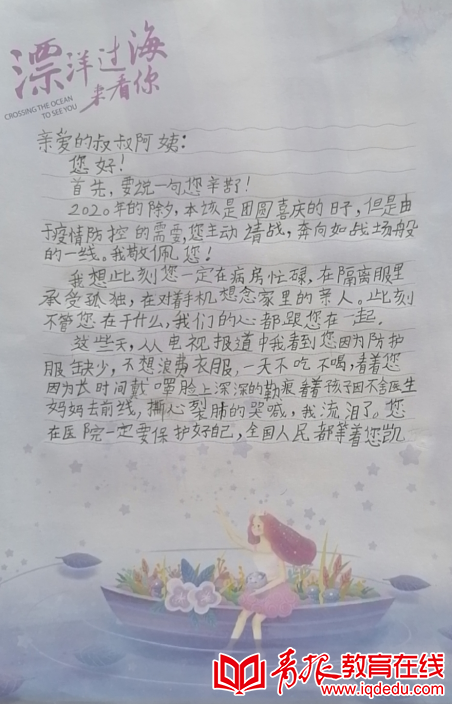 漂洋过海
来看你
CROSSING THE OCEAN
TO SEE YOU
亲爱的叔叔阿姨：
您好！
首先，要说一句您辛苦了！
2020年的除夕，本该是团圆喜庆的日子，但是由
于疫情防控的需要，您主动请战，奔向如战场般
的一线。我敬佩您！
我想此刻您一定在病房忙碌，在隔离服里
承受孤独，在对着手机想念家里的亲人。此刻
不管您在干什么，我们的心都跟您在一起。
这些天，从电视报道中我看到您因为防护
服缺少，不想浪费衣服，一天不吃不喝，看着您
因为长时间戴罩脸上深深的勒痕看着孩子因不舍医生
妈妈去前线，撕心裂肺的哭喊，我流泪了。您
在医院一定要保护好自己，全国人民都等着您凯
青报教育在线
www.iqdedu.com